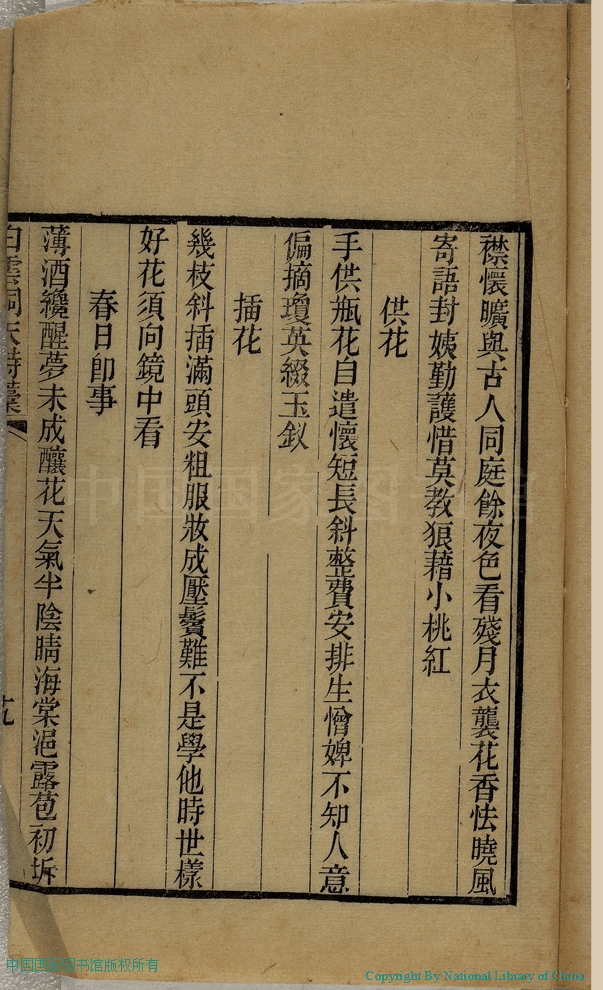 襟懷曠與古人同庭餘夜色看殘月衣襲花香怯曉風
寄語封姨勤護惜莫教狼藉小桃紅
供花
手供瓶花自遣懷短長斜整費安排生憎婢不知人意
偏摘瓊英綴玉釵
插花
幾枝斜插滿頭安粗服妝成壓鬢難不是學他時世樣
好花須向鏡中看
春日卽事
薄酒纔醒夢未成釀花天氣半陰晴海棠浥露苞初坼
白雲洞天詩藁
中国国家图书馆
中国国家图书馆版权所有
Copyright By National Library of China